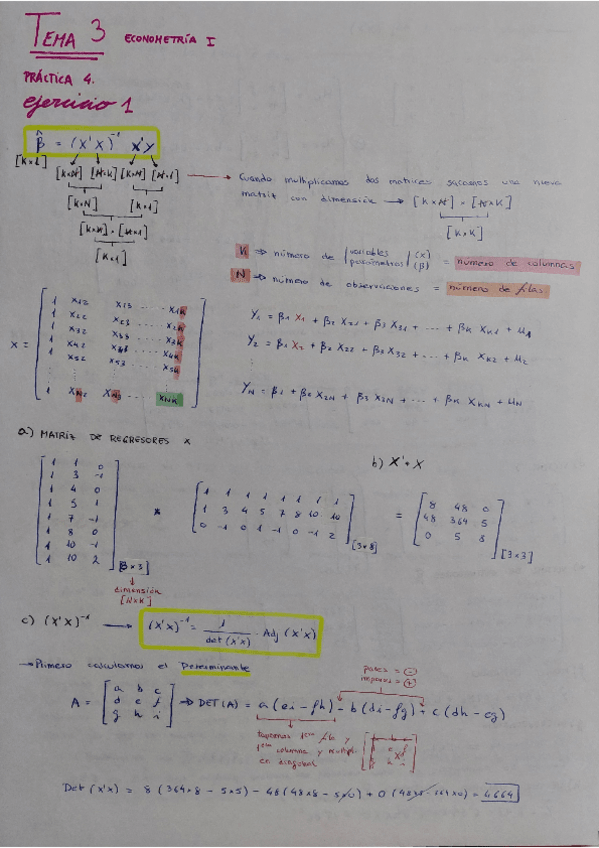 TEMA 3 ECONOMETRÍA I
PRÁCTICA 4.
ejercicio 1
β̂ = (X'X)⁻¹ X'Y
[K×1] [K×N] [N×K] [K×N] [N×1] → Cuando multiplicamos dos matrices sacamos una nueva
[K×N] [K×1] matriz con dimensión → [K×N] × [N×K]
[K×K] × [K×1] [K×K]
[K×1]
K ⇒ número de variables (X) parámetros (β) = número de columnas
N ⇒ número de observaciones = número de filas
X =
1 X12 X13 ... X1K
1 X22 X23 ... X2K
1 X32 X33 ... X3K
1 X42 X43 ... X4K
1 X52 X53 ... X5K
1 XN2 XN3 ... XNK
Y1 = β1 X1 + β2 X21 + β3 X31 + ... + βK XK1 + u1
Y2 = β1 X2 + β2 X22 + β3 X32 + ... + βK XK2 + u2
YN = β1 + β2 X2N + β3 X3N + ... + βK XKN + uN
a) MATRIZ DE REGRESORES X
b) X' * X
1 1 0
1 3 -1
1 4 0
1 5 1
1 7 -1
1 8 0
1 10 -1
1 10 2
[8×3]
*
1 1 1 1 1 1 1 1
1 3 4 5 7 8 10 10
0 -1 0 1 -1 0 -1 2
[3×8]
=
8 48 0
48 364 5
0 5 8
[3×3]
dimensión
[N×K]
c) (X'X)⁻¹ → (X'X)⁻¹ = 1/det(X'X) · Adj (X'X)
→ Primero calculamos el Determinante
pares = ⊖
impares = ⊕
A =
a b c
d e f
g h i
⇒ DET(A) = a(ei - fh) - b(di - fg) + c(dh - eg)
tapamos 1era fila y
1era columna y multipl.
en diagonal
Det (X'X) = 8 (364×8 - 5×5) - 48 (48×8 - 5×0) + 0 (48×5 - 364×0) = 4664